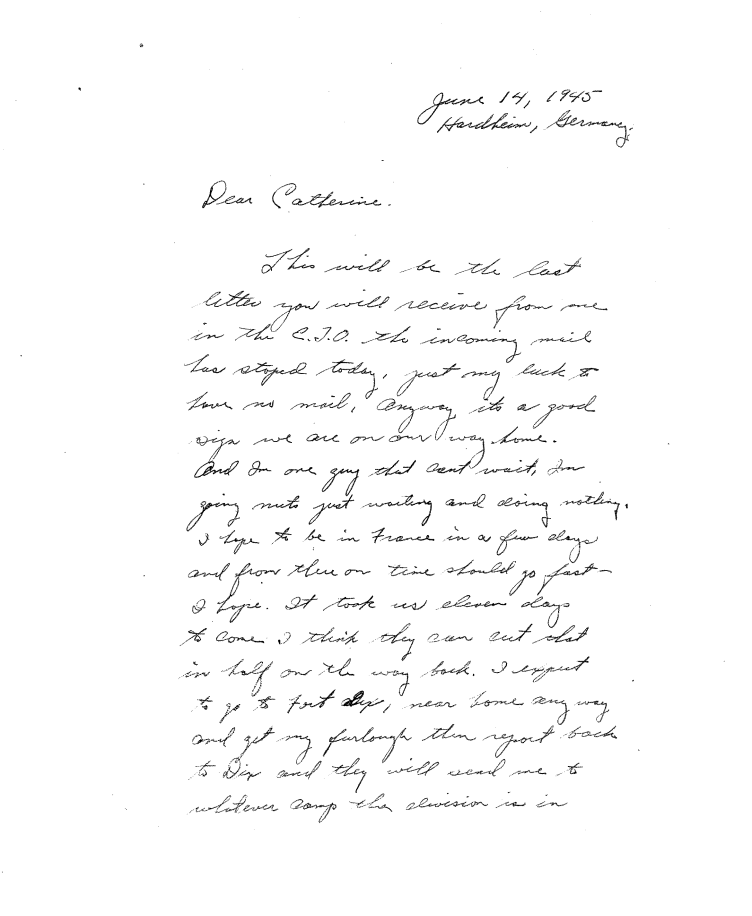 June 14, 1945
Hardheim, Germany.
Dear Catherine.
This will be the last
letter you will receive from me
in the E.T.O. the incoming mail
has stoped today, just my luck to
have no mail, Anyway, its a good
sign we are on our way home.
And Im one guy that cant wait, Im
going nuts just waiting and doing nothing.
I hope to be in France in a few days
and from there on time should go fast—
I hope. It took us eleven days
to come I think they can cut that
in half on the way back. I expect
to go to Fort Dix, near home any way
and get my furlough then report back
to Dix and they will send me to
whatever camp the division is in